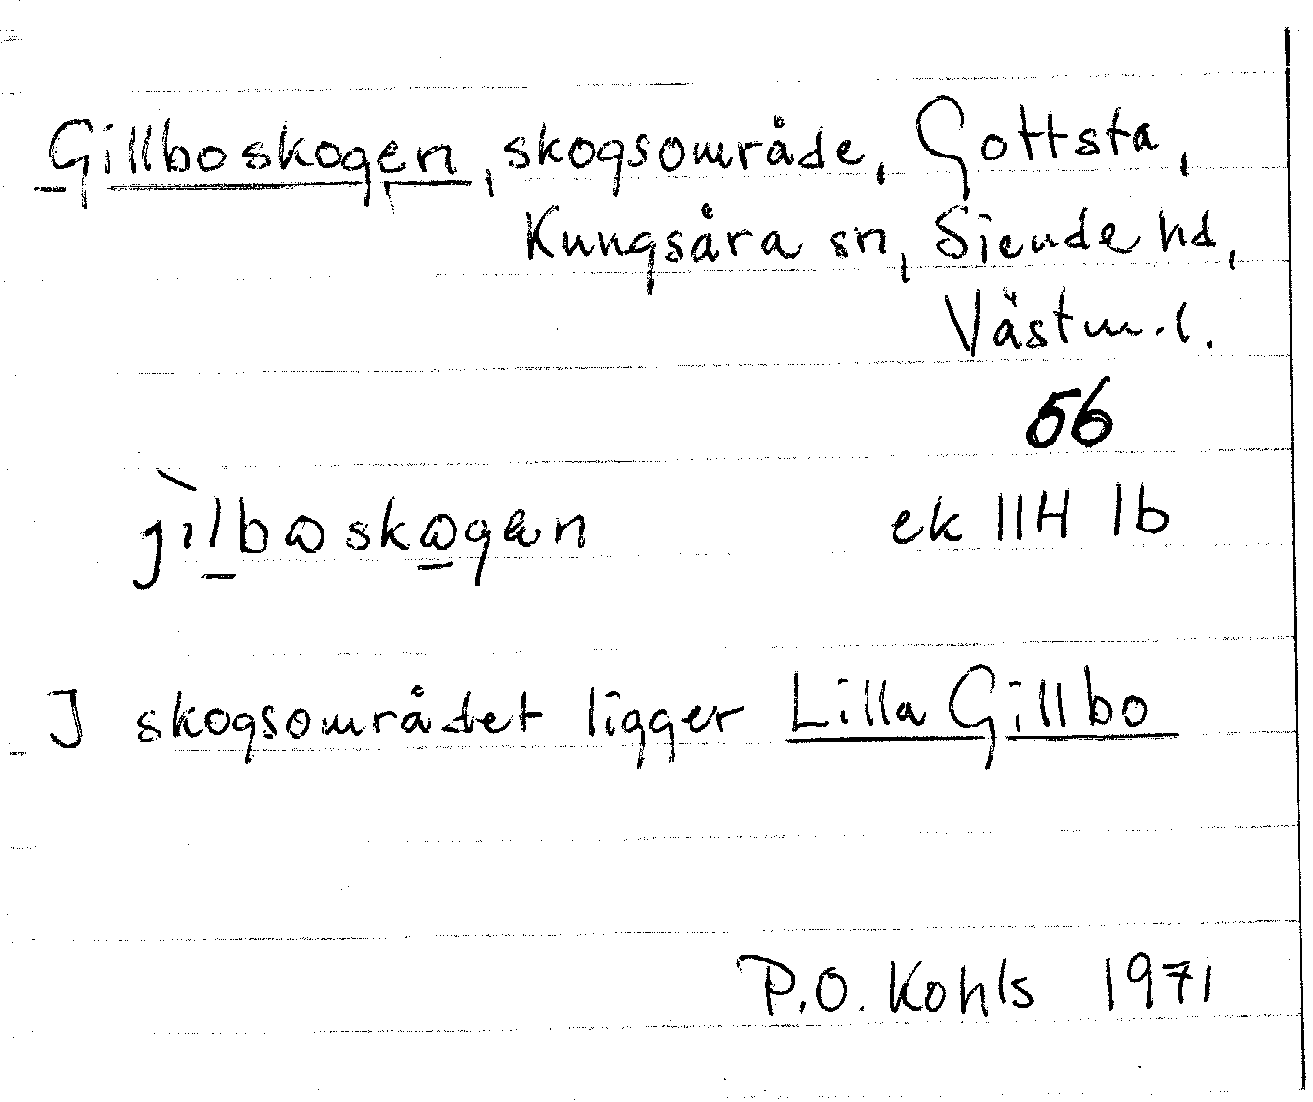 Gillboskogen, skogsområde, Gottsta,
Kungsåra sn, Siende hd,
Västm.l.
56
jìlbωskωgæn ek 11H 1b
I skogsområdet ligger Lilla Gillbo
P.O. Kohls 1971